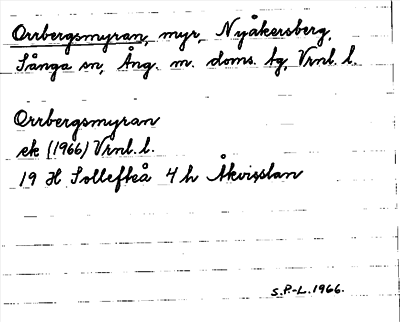 Orrbergsmyran, myr, Nyåkersberg,
Sånga sn, Ång. m. doms. bg, Vrnl. l.
Orrbergsmyran
ek (1966) Vrnl. l.
19 H Sollefteå 4 h Åkvisslan
S.P.-L. 1966.